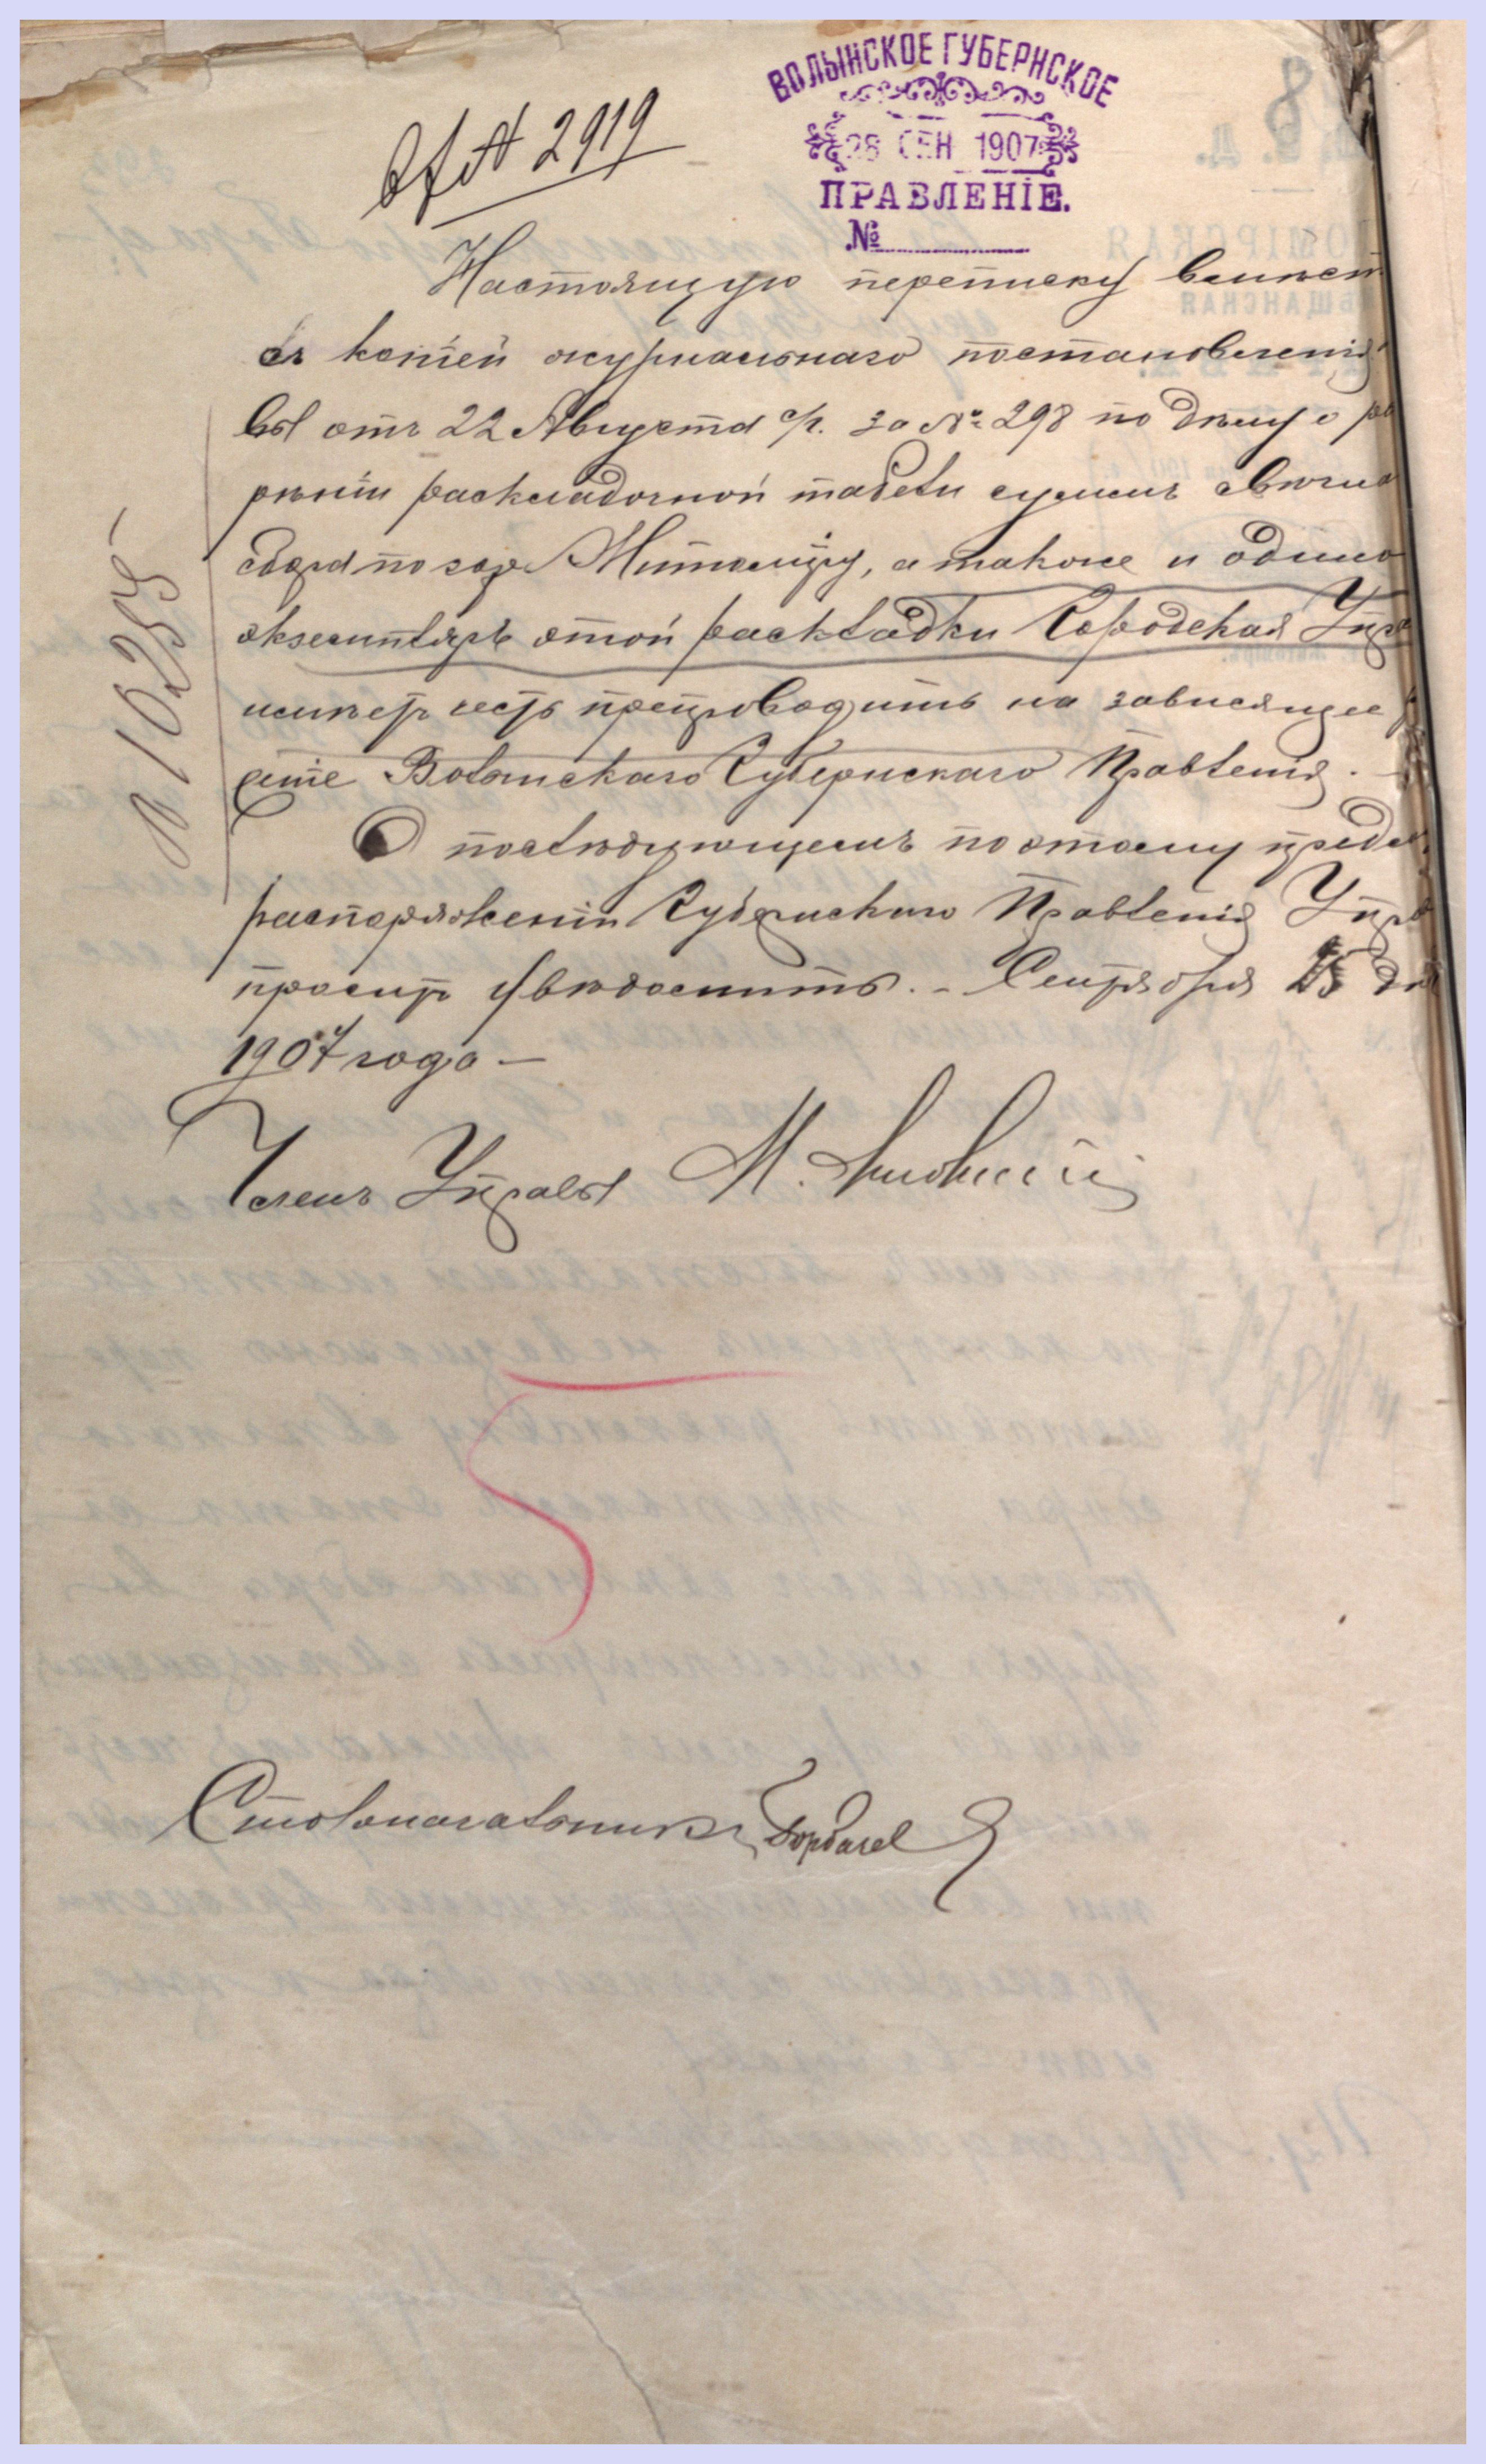 ВОЛЫНСКОЕ ГУБЕРНСКОЕ
28 СЕН 1907
ПРАВЛЕНІЕ.
№
№ 2919
Настоящую переписку вмѣст
съ копіей журнальнаго постановленія
вы отъ 22 Августа с/г. за № 298 по дѣлу о
рѣніи раскладочной табели суммъ свѣчна
сбора по гор. Житоміру, а также и одинъ
экземпляръ этой раскладки Городская Упра
имѣетъ честь препроводить на зависящее
Волынскаго Губернскаго Правленія.
О послѣдующемъ по этому предм
распоряженіи Губернскаго Правленія Упра
проситъ увѣдомить. - Сентября 25 дня
1907 года —
Членъ Управы М.
Столоначальникъ
№ 10255